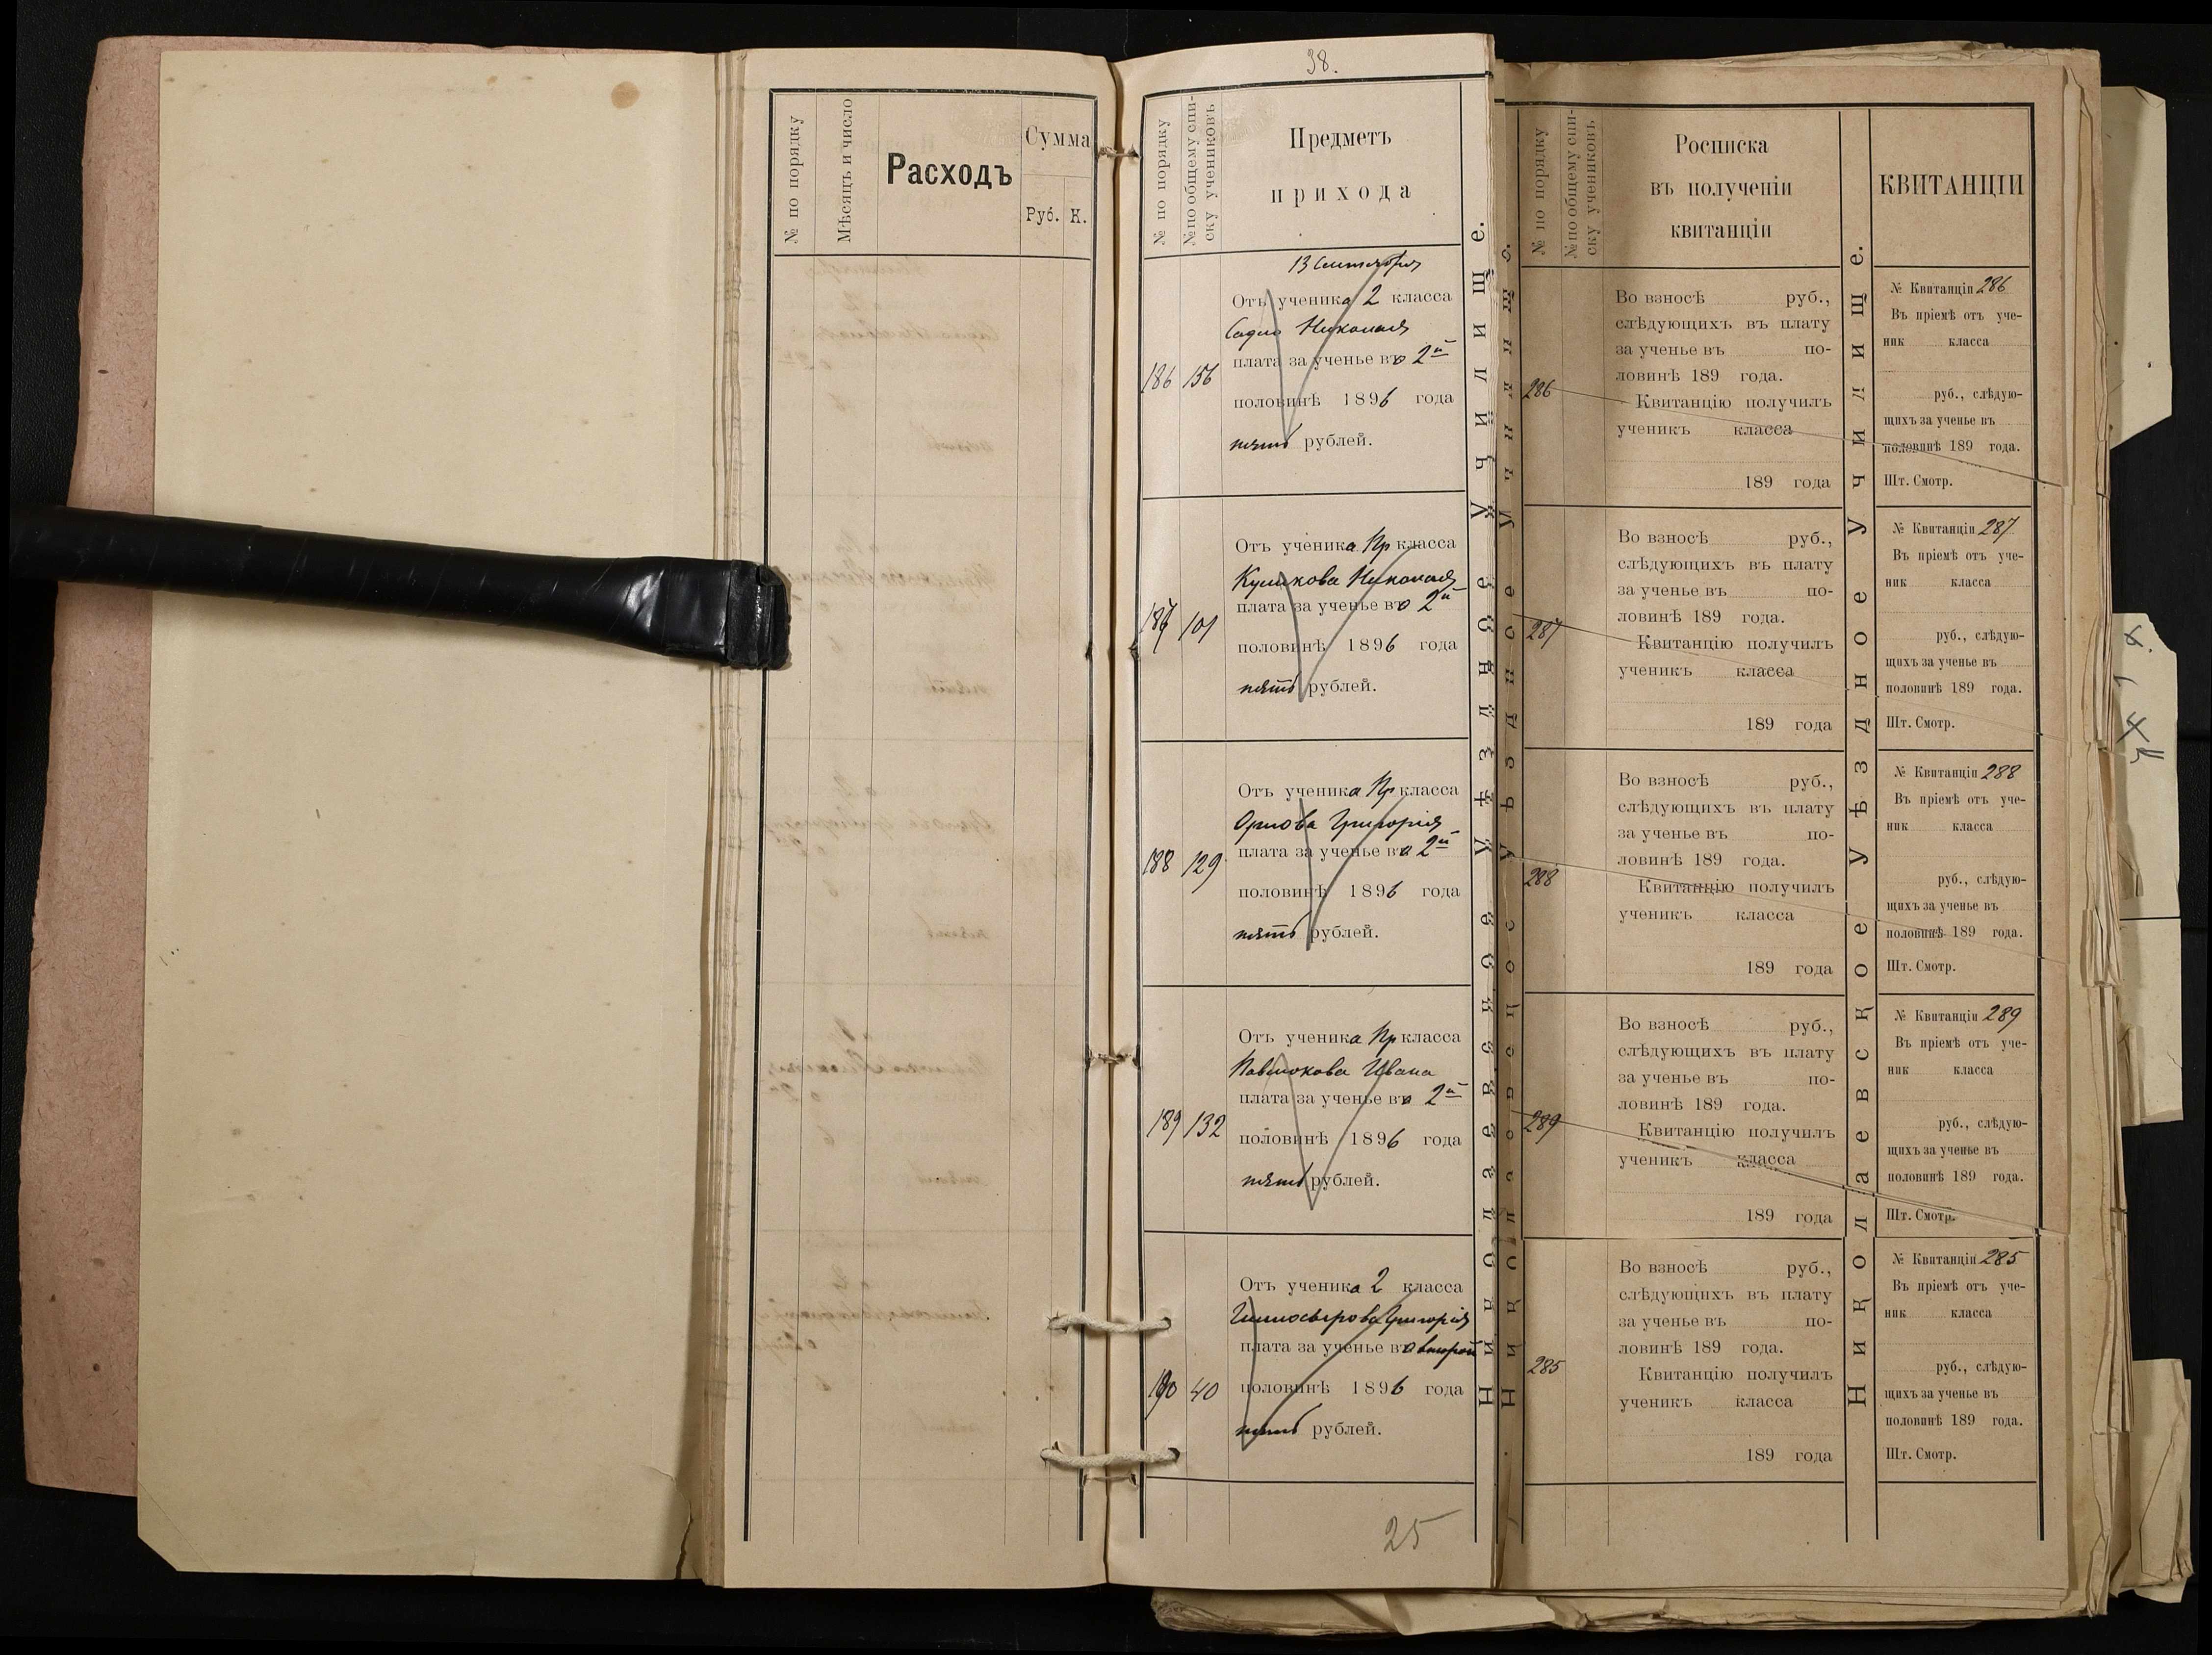 № по порядку
Мѣсяцъ и число
Расходъ
Сумма
Руб. К.
38.
№ по порядку
№ по общему спи-
ску учениковъ
Предметъ
прихода
13 Сентября
186 156
Отъ ученика 2 класса
Николая
плата за ученье во 2й
половинѣ 1896 года
пять рублей.
187 101
Отъ ученика Пр класса
Куликова Николая
плата за ученье во 2й
половинѣ 1896 года
пять рублей.
188 129
Отъ ученика Пр класса
Орлова Григорія
плата за ученье во 2й
половинѣ 1896 года
пять рублей.
189 132
Отъ ученика Пр класса
Павлюкова Ивана
плата за ученье во 2й
половинѣ 1896 года
пять рублей.
190 40
Отъ ученика 2 класса
Григорія
плата за ученье во второй
половинѣ 1896 года
пять рублей.
25
Николаевское Уѣздное Училище.
Николаевское Уѣздное Училище.
№ по порядку
№ по общему спи-
ску учениковъ
Росписка
въ полученіи
квитанціи
286
Во взносѣ руб.,
слѣдующихъ въ плату
за ученье въ по-
ловинѣ 189 года.
Квитанцію получилъ
ученикъ класса
189 года
287
Во взносѣ руб.,
слѣдующихъ въ плату
за ученье въ по-
ловинѣ 189 года.
Квитанцію получилъ
ученикъ класса
189 года
288
Во взносѣ руб.,
слѣдующихъ въ плату
за ученье въ по-
ловинѣ 189 года.
Квитанцію получилъ
ученикъ класса
189 года
289
Во взносѣ руб.,
слѣдующихъ въ плату
за ученье въ по-
ловинѣ 189 года.
Квитанцію получилъ
ученикъ класса
189 года
285
Во взносѣ руб.,
слѣдующихъ въ плату
за ученье въ по-
ловинѣ 189 года.
Квитанцію получилъ
ученикъ класса
189 года
Николаевское Уѣздное Училище.
КВИТАНЦІИ
№ Квитанціи 286
Въ пріемѣ отъ уче-
ник класса
руб., слѣдую-
щихъ за ученье въ
половинѣ 189 года.
Шт. Смотр.
№ Квитанціи 287
Въ пріемѣ отъ уче-
ник класса
руб., слѣдую-
щихъ за ученье въ
половинѣ 189 года.
Шт. Смотр.
№ Квитанціи 288
Въ пріемѣ отъ уче-
ник класса
руб., слѣдую-
щихъ за ученье въ
половинѣ 189 года.
Шт. Смотр.
№ Квитанціи 289
Въ пріемѣ отъ уче-
ник класса
руб., слѣдую-
щихъ за ученье въ
половинѣ 189 года.
Шт. Смотр.
№ Квитанціи 285
Въ пріемѣ отъ уче-
ник класса
руб., слѣдую-
щихъ за ученье въ
половинѣ 189 года.
Шт. Смотр.